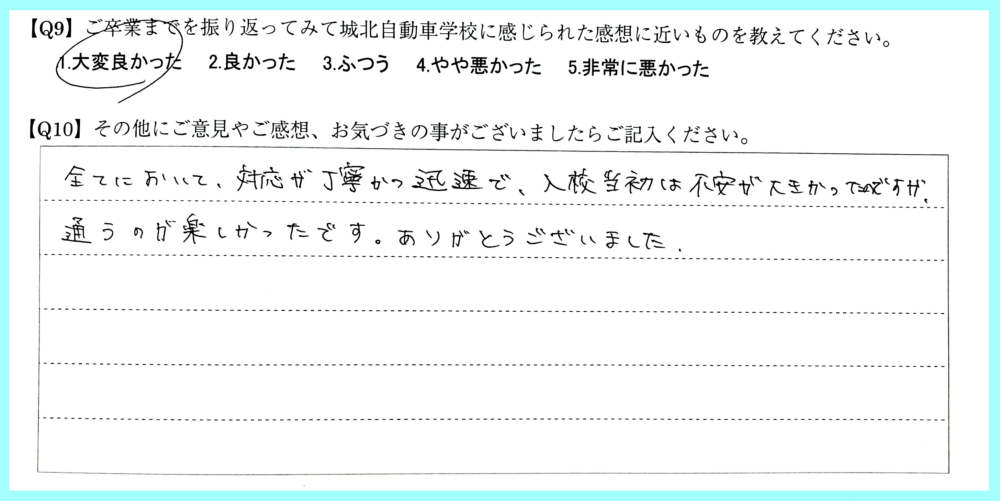 【Q9】ご卒業までを振り返ってみて城北自動車学校に感じられた感想に近いものを教えてください。
1.大変良かった 2.良かった 3.ふつう 4.やや悪かった 5.非常に悪かった
【Q10】その他にご意見やご感想、お気づきの事がございましたらご記入ください。
全てにおいて、対応が丁寧かつ迅速で、入校当初は不安が大きかったのですが、
通うのが楽しかったです。ありがとうございました.